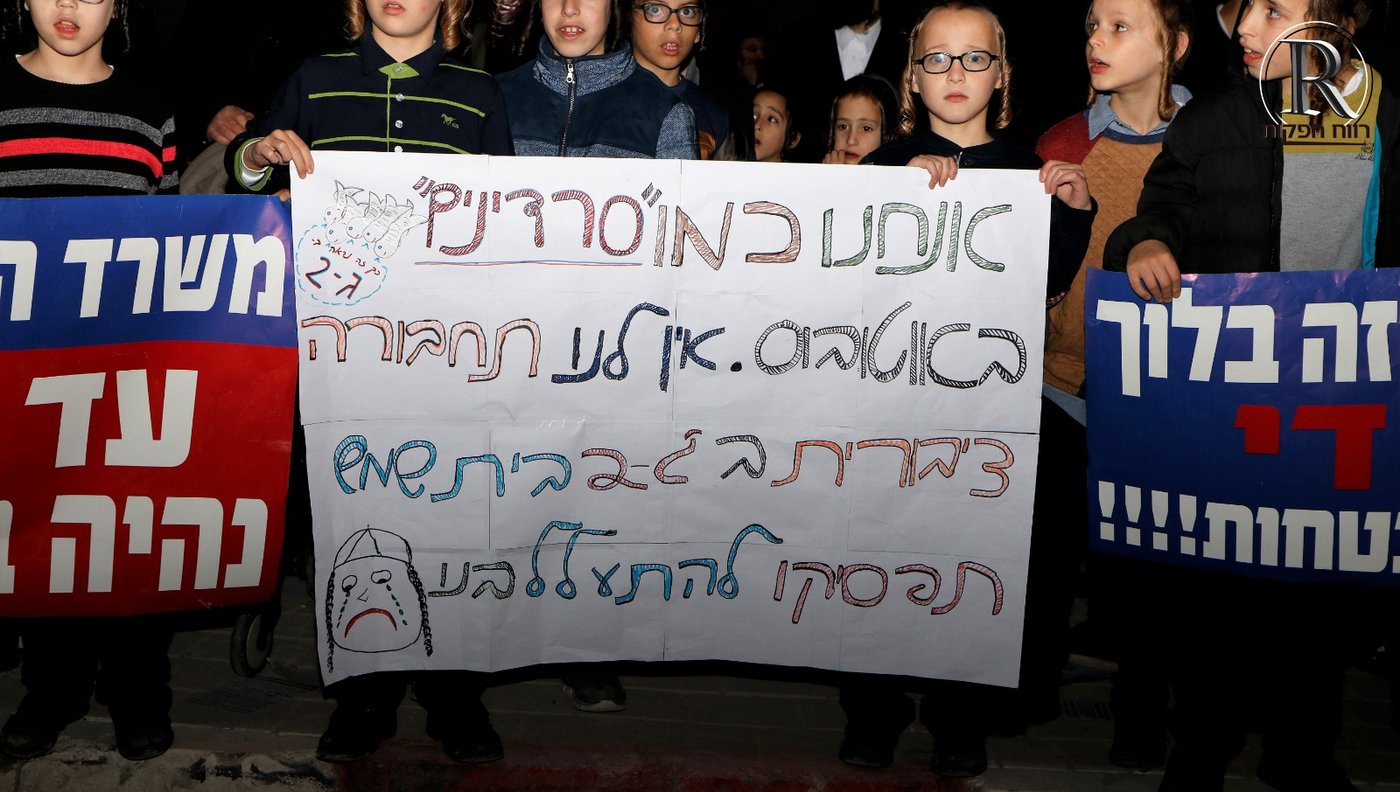 אנחנו כמו "סרדינים"
באוטובוס. אין לנו תחבורה
ציבורית ב ג'-2 בית שמש
תפסיקו להתעלל בנו
ג-2
משרד ה
עד
נהיה ב
זה בלוך
די
טחות!!!!
R
רווח הפקות